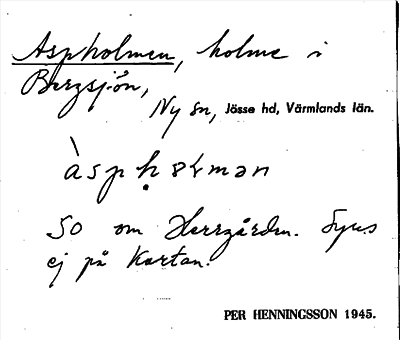 Aspholmen, holme i
Bergsjön,
Ny sn, Jösse hd, Värmlands län.
àspḥoɫmən
SO om Herrgården. Synes
ej på Kartan.
PER HENNINGSSON 1945.